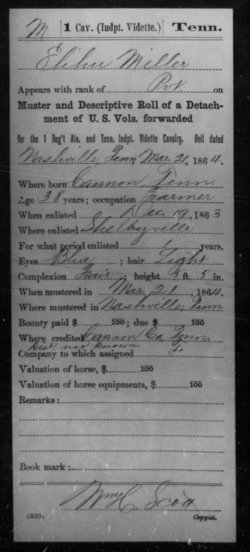 M | 1 Cav. (Indpt. Vidette.) | Tenn.
Elihu Miller
Appears with rank of Pvt. on
Muster and Descriptive Roll of a Detach-
ment of U. S. Vols. forwarded
for the 1 Reg't Ala. and Tenn. Indpt. Vidette Cavalry. Roll dated
Nashville, Tenn, Mar 21, 1864.
Where born Cannon Tenn
Age 38 years; occupation Farmer
When enlisted Dec 19, 1863
Where enlisted Shelbyville
For what period enlisted 1 years.
Eyes Blue; hair Light
Complexion Fair; height 5 ft. 5 in.
When mustered in Mar. 21, 1864.
Where mustered in Nashville, Tenn
Bounty paid $ 100; due $ 100
Where credited Cannon Co Tenn
Dist not known
Company to which assigned
Valuation of horse, $ 100
Valuation of horse equipments, $ 100
Remarks:
Book mark:
(539) Copyist.